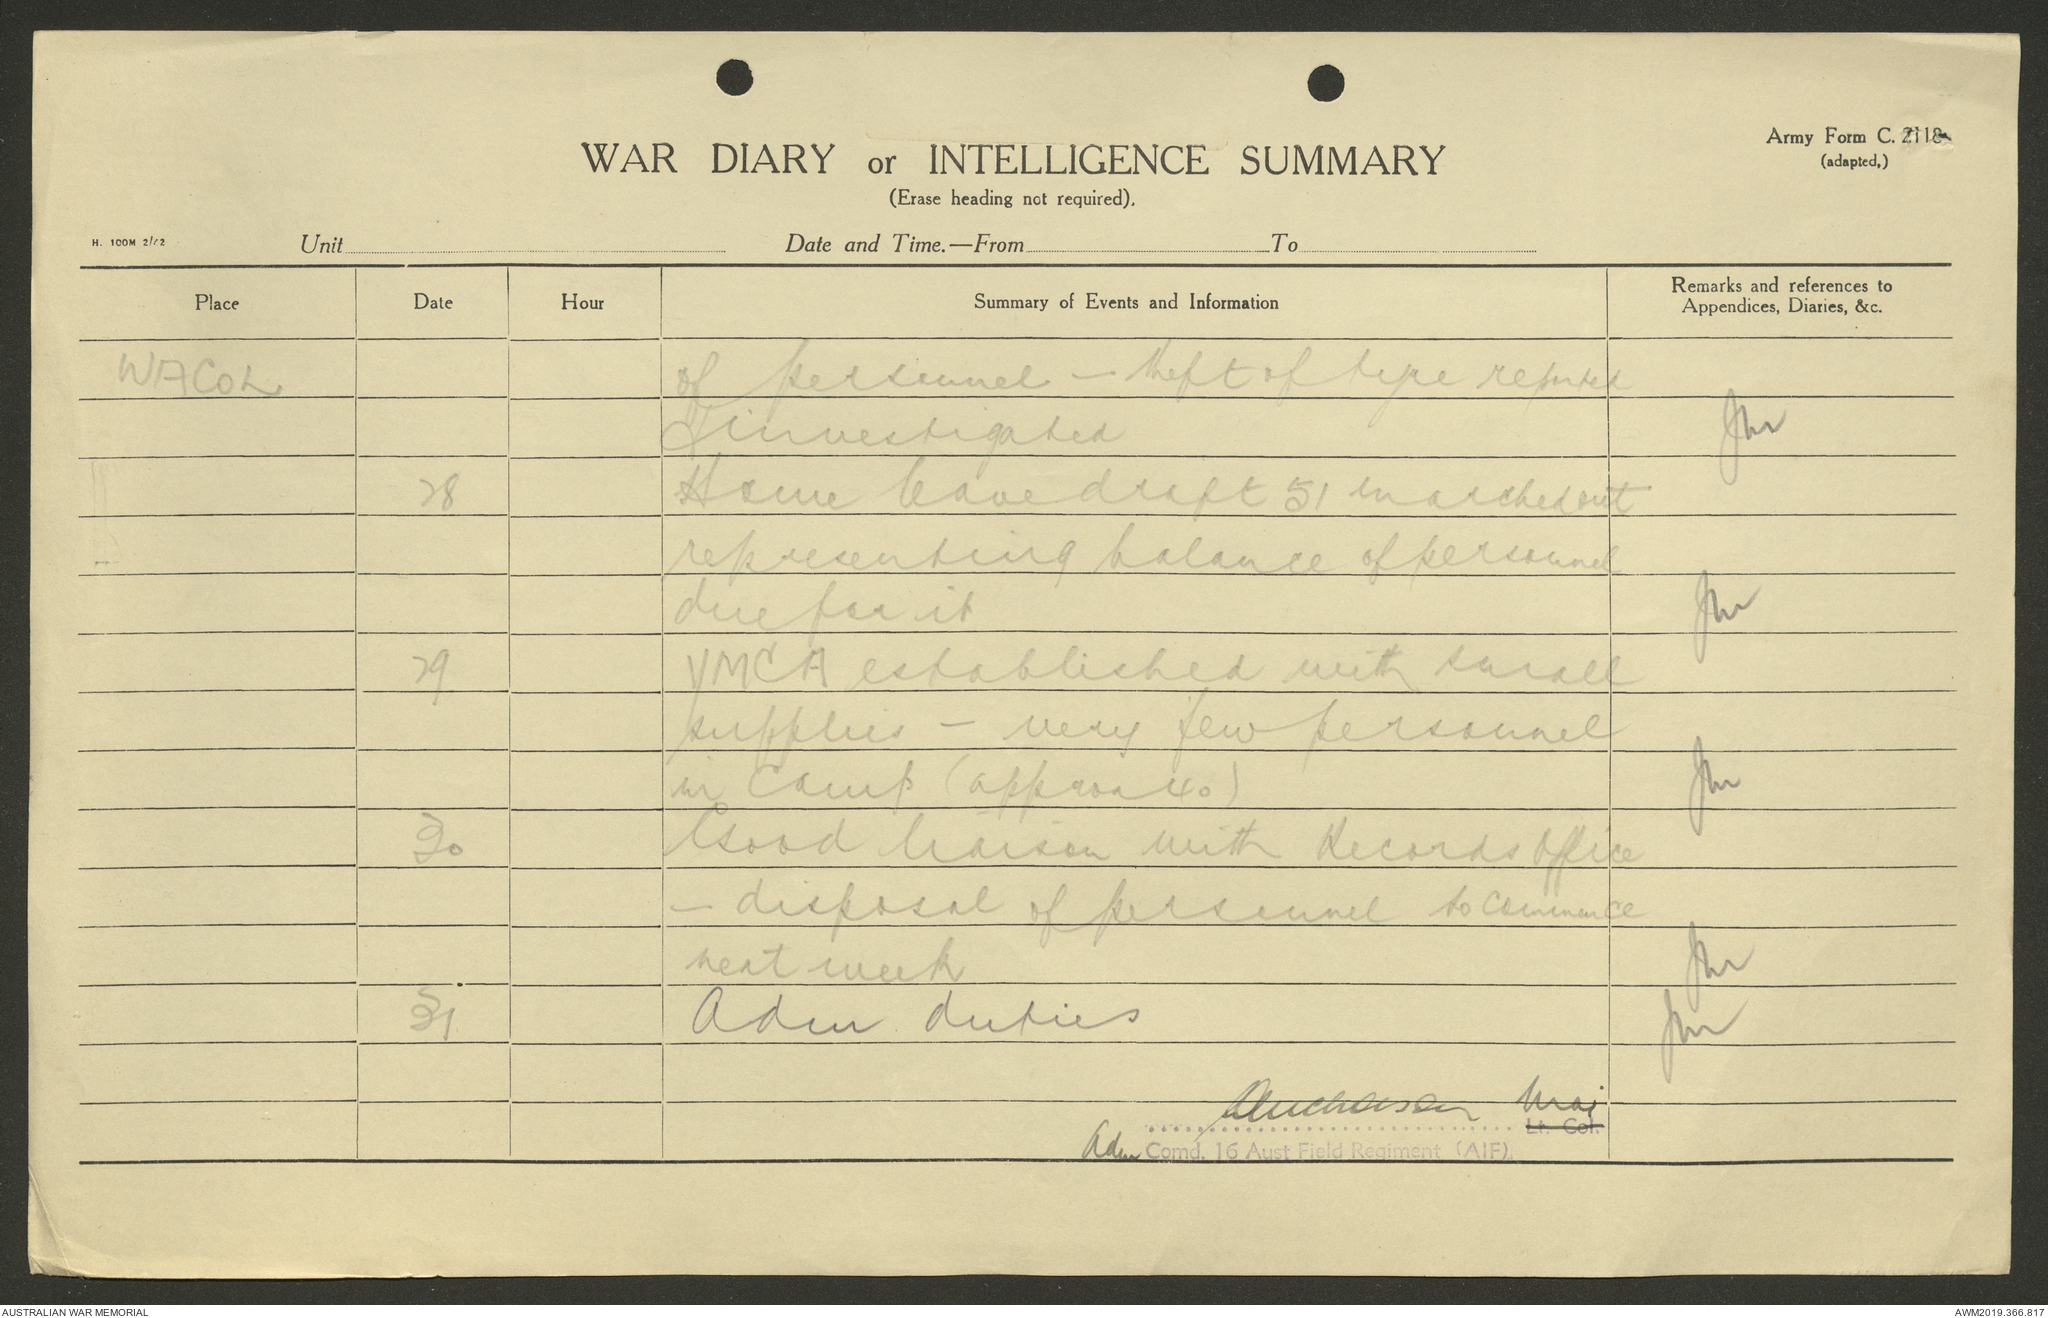 Army Form C. 2118
(adapted,)
WAR DIARY or INTELLIGENCE SUMMARY
(Erase heading not required).
H. 100M 2/42
Unit
Date and Time.—From
To
Place
Date
Hour
Summary of Events and Information
Remarks and references to
Appendices, Diaries, &c.
WACOL
of personnel — theft of tyre reported
& investigated
28
Home leave draft 51 marched out
representing balance of personnel
due for it
29
YMCA established with small
supplies — very few personnel
in camp (approx 40)
30
Good liaison with Records Office
— disposal of personnel to commence
next week
31
Adm duties
Maj
Lt. Col.
Adm Comd. 16 Aust Field Regiment (AIF).
AUSTRALIAN WAR MEMORIAL
AWM2019.366.817